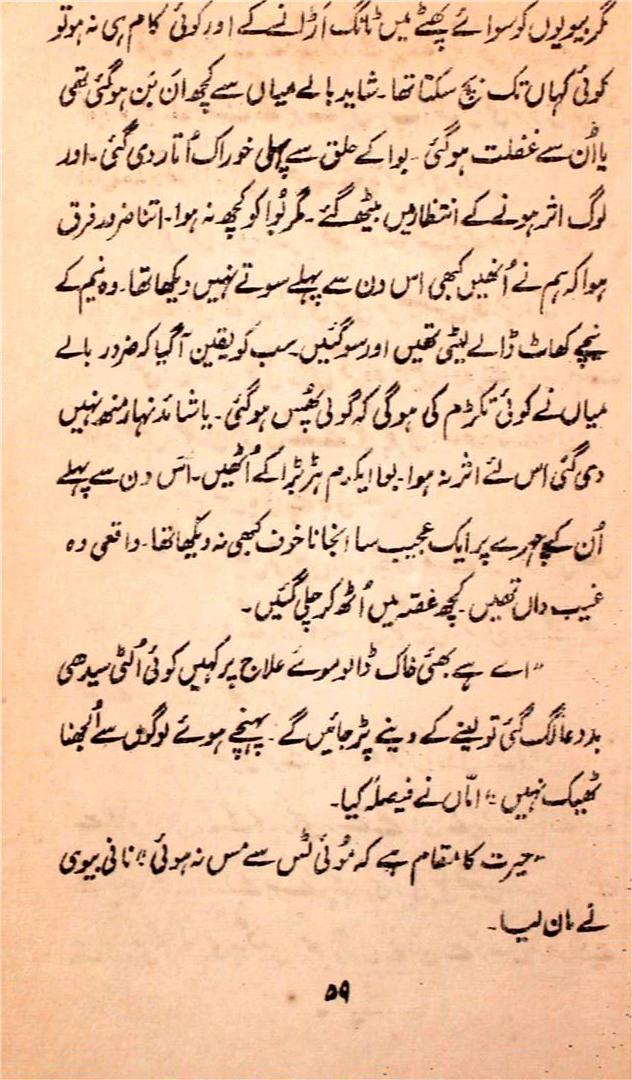 مگر بیویوں کو سوائے پھٹے میں ٹانگ اَڑانے کے اور کوئی کام ہی نہ ہو تو
کوئی کہاں تک بچ سکتا تھا۔ شاید بالے میاں سے کچھ اَن بَن ہو گئی تھی
یا اُن سے غفلت ہو گئی۔ بوا کے حلق سے پہلی خوراک اُتار دی گئی۔ اور
لوگ اثر ہونے کے انتظار میں بیٹھ گئے۔ مگر بُوا کو کچھ نہ ہوا۔ اتنا ضرور فرق
ہوا کہ ہم نے اُنھیں کبھی اس دن سے پہلے سوتے نہیں دیکھا تھا۔ وہ نیم کے
نیچے کھاٹ ڈالے لیٹی تھیں اور سو گئیں۔ سب کو یقین آگیا کہ ضرور بالے
میاں نے کوئی تکڑم کی ہوگی کہ گولی پھُس ہو گئی۔ یا شائد نہار منھ نہیں
دی گئی اس لئے اثر نہ ہوا۔ بوا ایکدم ہڑبڑا کے اُٹھیں۔ اس دن سے پہلے
اُن کے چہرے پر ایک عجیب سا انجانا خوف کبھی نہ دیکھا تھا۔ واقعی وہ
غیب داں تھیں۔ کچھ غصّہ میں اُٹھ کر چلی گئیں۔
"اے ہے بھئی خاک ڈالو موئے علاج پر کہیں کوئی اُلٹی سیدھی
بددعا لگ گئی تو لینے کے دینے پڑ جائیں گے۔ پہنچے ہوئے لوگوں سے اُلجھنا
ٹھیک نہیں" امّاں نے فیصلہ کیا۔
"حیرت کا مقام ہے کہ مُوئی ٹس سے مس نہ ہوئی" نانی بیوی
نے مان لیا۔
۵۹